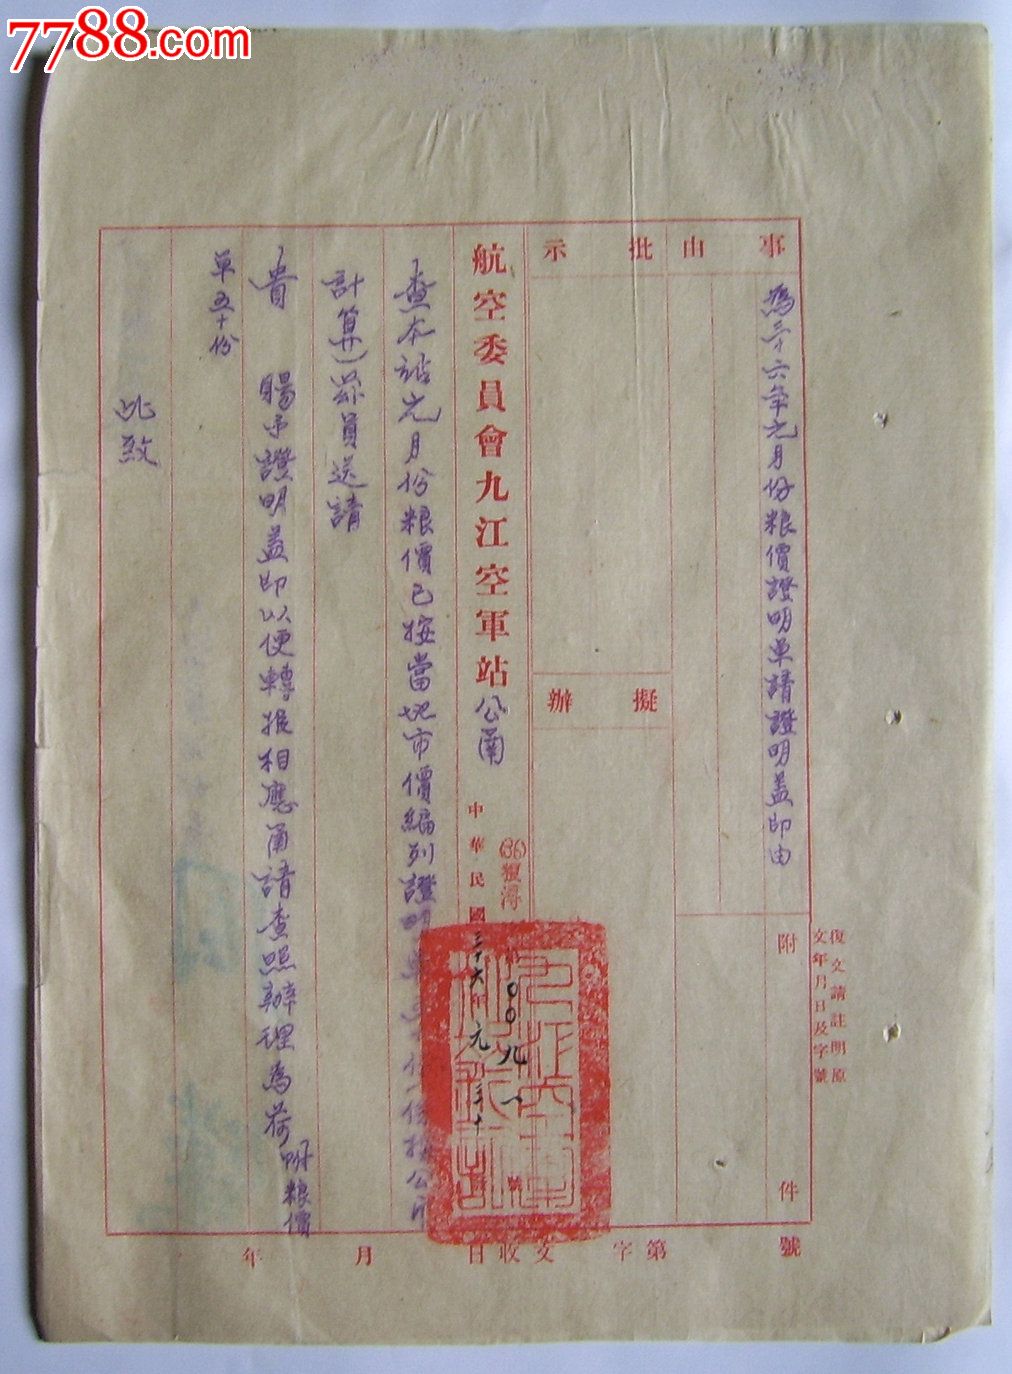 7788.com
復文請註明原
文年月日及字號
事由
為三十六年元月份粮價證明单請證明盖印由
附件
批示
擬辦
航空委員會九江空軍站公函
(36)
〇〇九一號
中華民國三十六年元月三十日
查本站元月份粮價已按當地市價編列證明
公斤
計算)茲員送請
貴 賜予證明盖印以便轉报相應函請查照辦理為荷
附粮價
单五十份
此致
年 月 日收文 字第 號